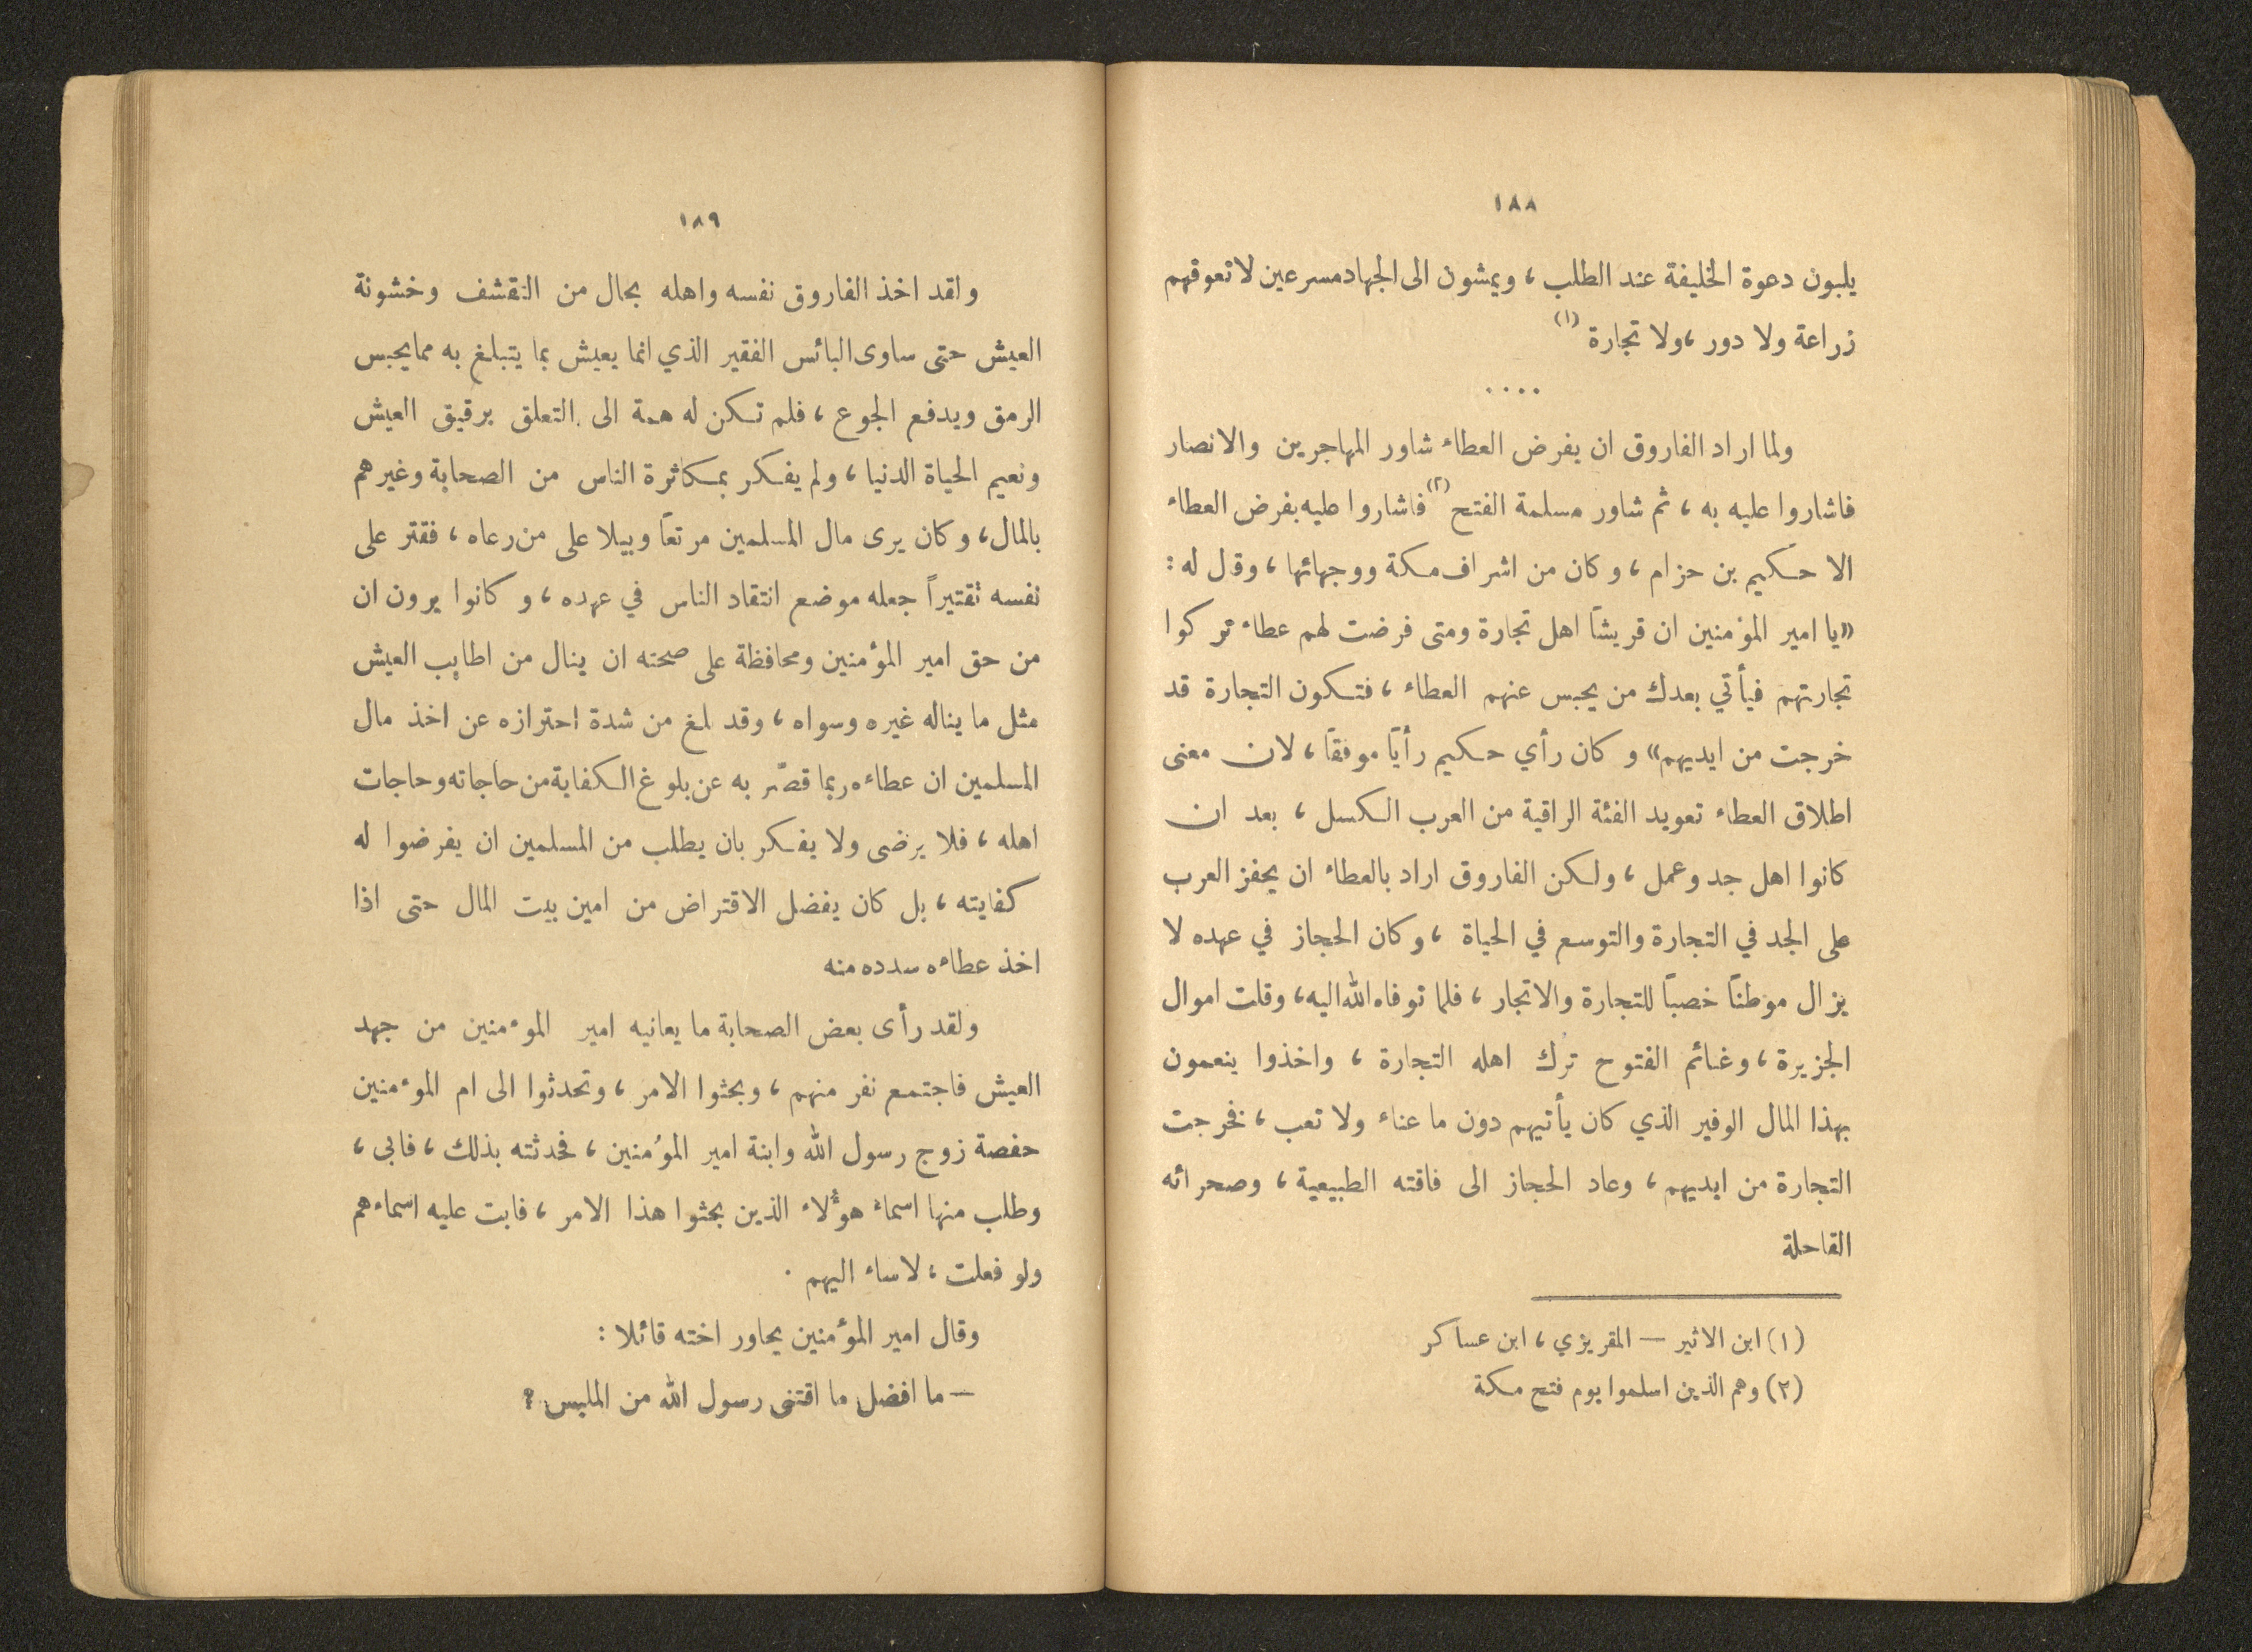 ١٨٨
يلبون دعوة الخليفة عند الطلب ، ويمشون الى الجهاد مسرعين لا تعوقهم
زراعة ولا دور ، ولا تجارة (١)
....
ولما اراد الفاروق ان يفرض العطاء شاور المهاجرين والانصار
فاشاروا عليه به ، ثم شاور مسلمة الفتح (٢) فاشاروا عليه بفرض العطاء
الا حكيم بن حزام ، وكان من اشراف مكة ووجهائها ، وقال له :
«يا امير المؤمنين ان قريشاً اهل تجارة ومتى فرضت لهم عطاء تركوا
تجارتهم فيأتي بعدك من يحبس عنهم العطاء ، فتكون التجارة قد
خرجت من ايديهم» وكان رأي حكيم رأياً موفقاً ، لان معنى
اطلاق العطاء تعويد الفئة الراقية من العرب الكسل ، بعد ان
كانوا اهل جد وعمل ، ولكن الفاروق اراد بالعطاء ان يحفز العرب
على الجد في التجارة والتوسع في الحياة ، وكان الحجاز في عهده لا
يزال موطناً خصباً للتجارة والاتجار ، فلما توفاه الله اليه ، وقلت اموال
الجزيرة ، وغنائم الفتوح ترك اهله التجارة ، واخذوا ينعمون
بهذا المال الوفير الذي كان يأتيهم دون ما عناء ولا تعب ، فخرجت
التجارة من ايديهم ، وعاد الحجاز الى فاقته الطبيعية ، وصحرائه
القاحلة
(١) ابن الاثير — المقريزي ، ابن عساكر
(٢) وهم الذين اسلموا يوم فتح مكة
١٨٩
ولقد اخذ الفاروق نفسه واهله بحال من التقشف وخشونة
العيش حتى ساوى البائس الفقير الذي انما يعيش بما يتبلغ به مما يحبس
الرمق ويدفع الجوع ، فلم تكن له همة الى التعلق برقيق العيش
ونعيم الحياة الدنيا ، ولم يفكر بمكاثرة الناس من الصحابة وغيرهم
بالمال ، وكان يرى مال المسلمين مرتعاً وبيلا على من رعاه ، فقتر على
نفسه تقتيراً جعله موضع انتقاد الناس في عهده ، وكانوا يرون ان
من حق امير المؤمنين ومحافظة على صحته ان ينال من اطايب العيش
مثل ما يناله غيره وسواه ، وقد بلغ من شدة احترازه عن اخذ مال
المسلمين ان عطاءه ربما قصّر به عن بلوغ الكفاية من حاجاته وحاجات
اهله ، فلا يرضى ولا يفكر بان يطلب من المسلمين ان يفرضوا له
كفايته ، بل كان يفضل الاقتراض من امين بيت المال حتى اذا
اخذ عطاءه سدده منه
ولقد رأى بعض الصحابة ما يعانيه امير الموءمنين من جهد
العيش فاجتمع نفر منهم ، وبحثوا الامر ، وتحدثوا الى ام الموءمنين
حفصة زوج رسول الله وابنة امير المؤمنين ، فحدثته بذلك ، فابى ،
وطلب منها اسماء هؤلاء الذين بحثوا هذا الامر ، فابت عليه اسماءهم
ولو فعلت ، لاساء اليهم .
وقال امير المؤمنين يحاور اخته قائلا :
— ما افضل ما اقتنى رسول الله من الملبس ؟